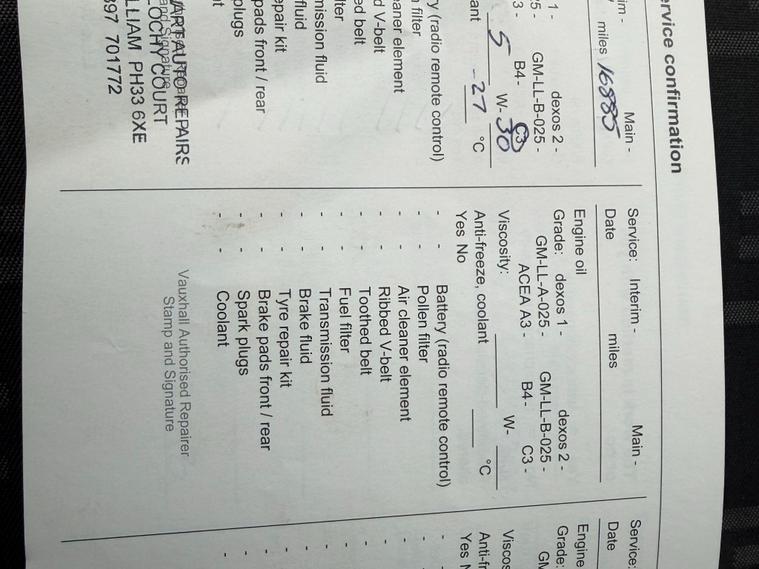 ervice confirmation
im - Main -
miles 16885
1 - dexos 2 -
25 - GM-LL-B-025 -
3 - B4- C3 -
5 W- 30
ant -27 °C
ry (radio remote control)
n filter
aner element
d V-belt
ed belt
lter
mission fluid
fluid
epair kit
pads front / rear
plugs
nt
WART AUTO REPAIRS
LOCHY COURT
LLIAM PH33 6XE
397 701772
Service: Interim - Main -
Date miles
Engine oil
Grade: dexos 1 - dexos 2 -
GM-LL-A-025 - GM-LL-B-025 -
ACEA A3 - B4- C3 -
Viscosity: W-
Anti-freeze, coolant °C
Yes No
- - Battery (radio remote control)
- - Pollen filter
- - Air cleaner element
- - Ribbed V-belt
- - Toothed belt
- - Fuel filter
- - Transmission fluid
- - Brake fluid
- - Tyre repair kit
- - Brake pads front / rear
- - Spark plugs
- - Coolant
Vauxhall Authorised Repairer
Stamp and Signature
Service:
Date
Engine
Grade:
GM
Viscos
Anti-fr
Yes N